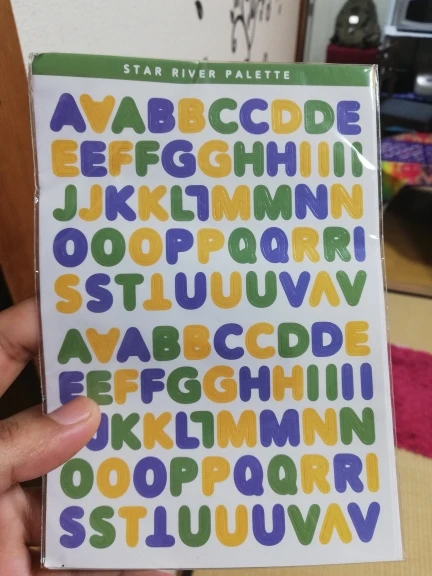 STAR RIVER PALETTE
AAABBCCDDE
EEFFGGHHIIII
JJKKLLMMNN
OOOPPQQRRI
SSTTUUUVVV
AAABBCCDDE
EEFFGGHHIIII
KKLLMMNN
OOOPPQQRRI
SSTTUUUVVV